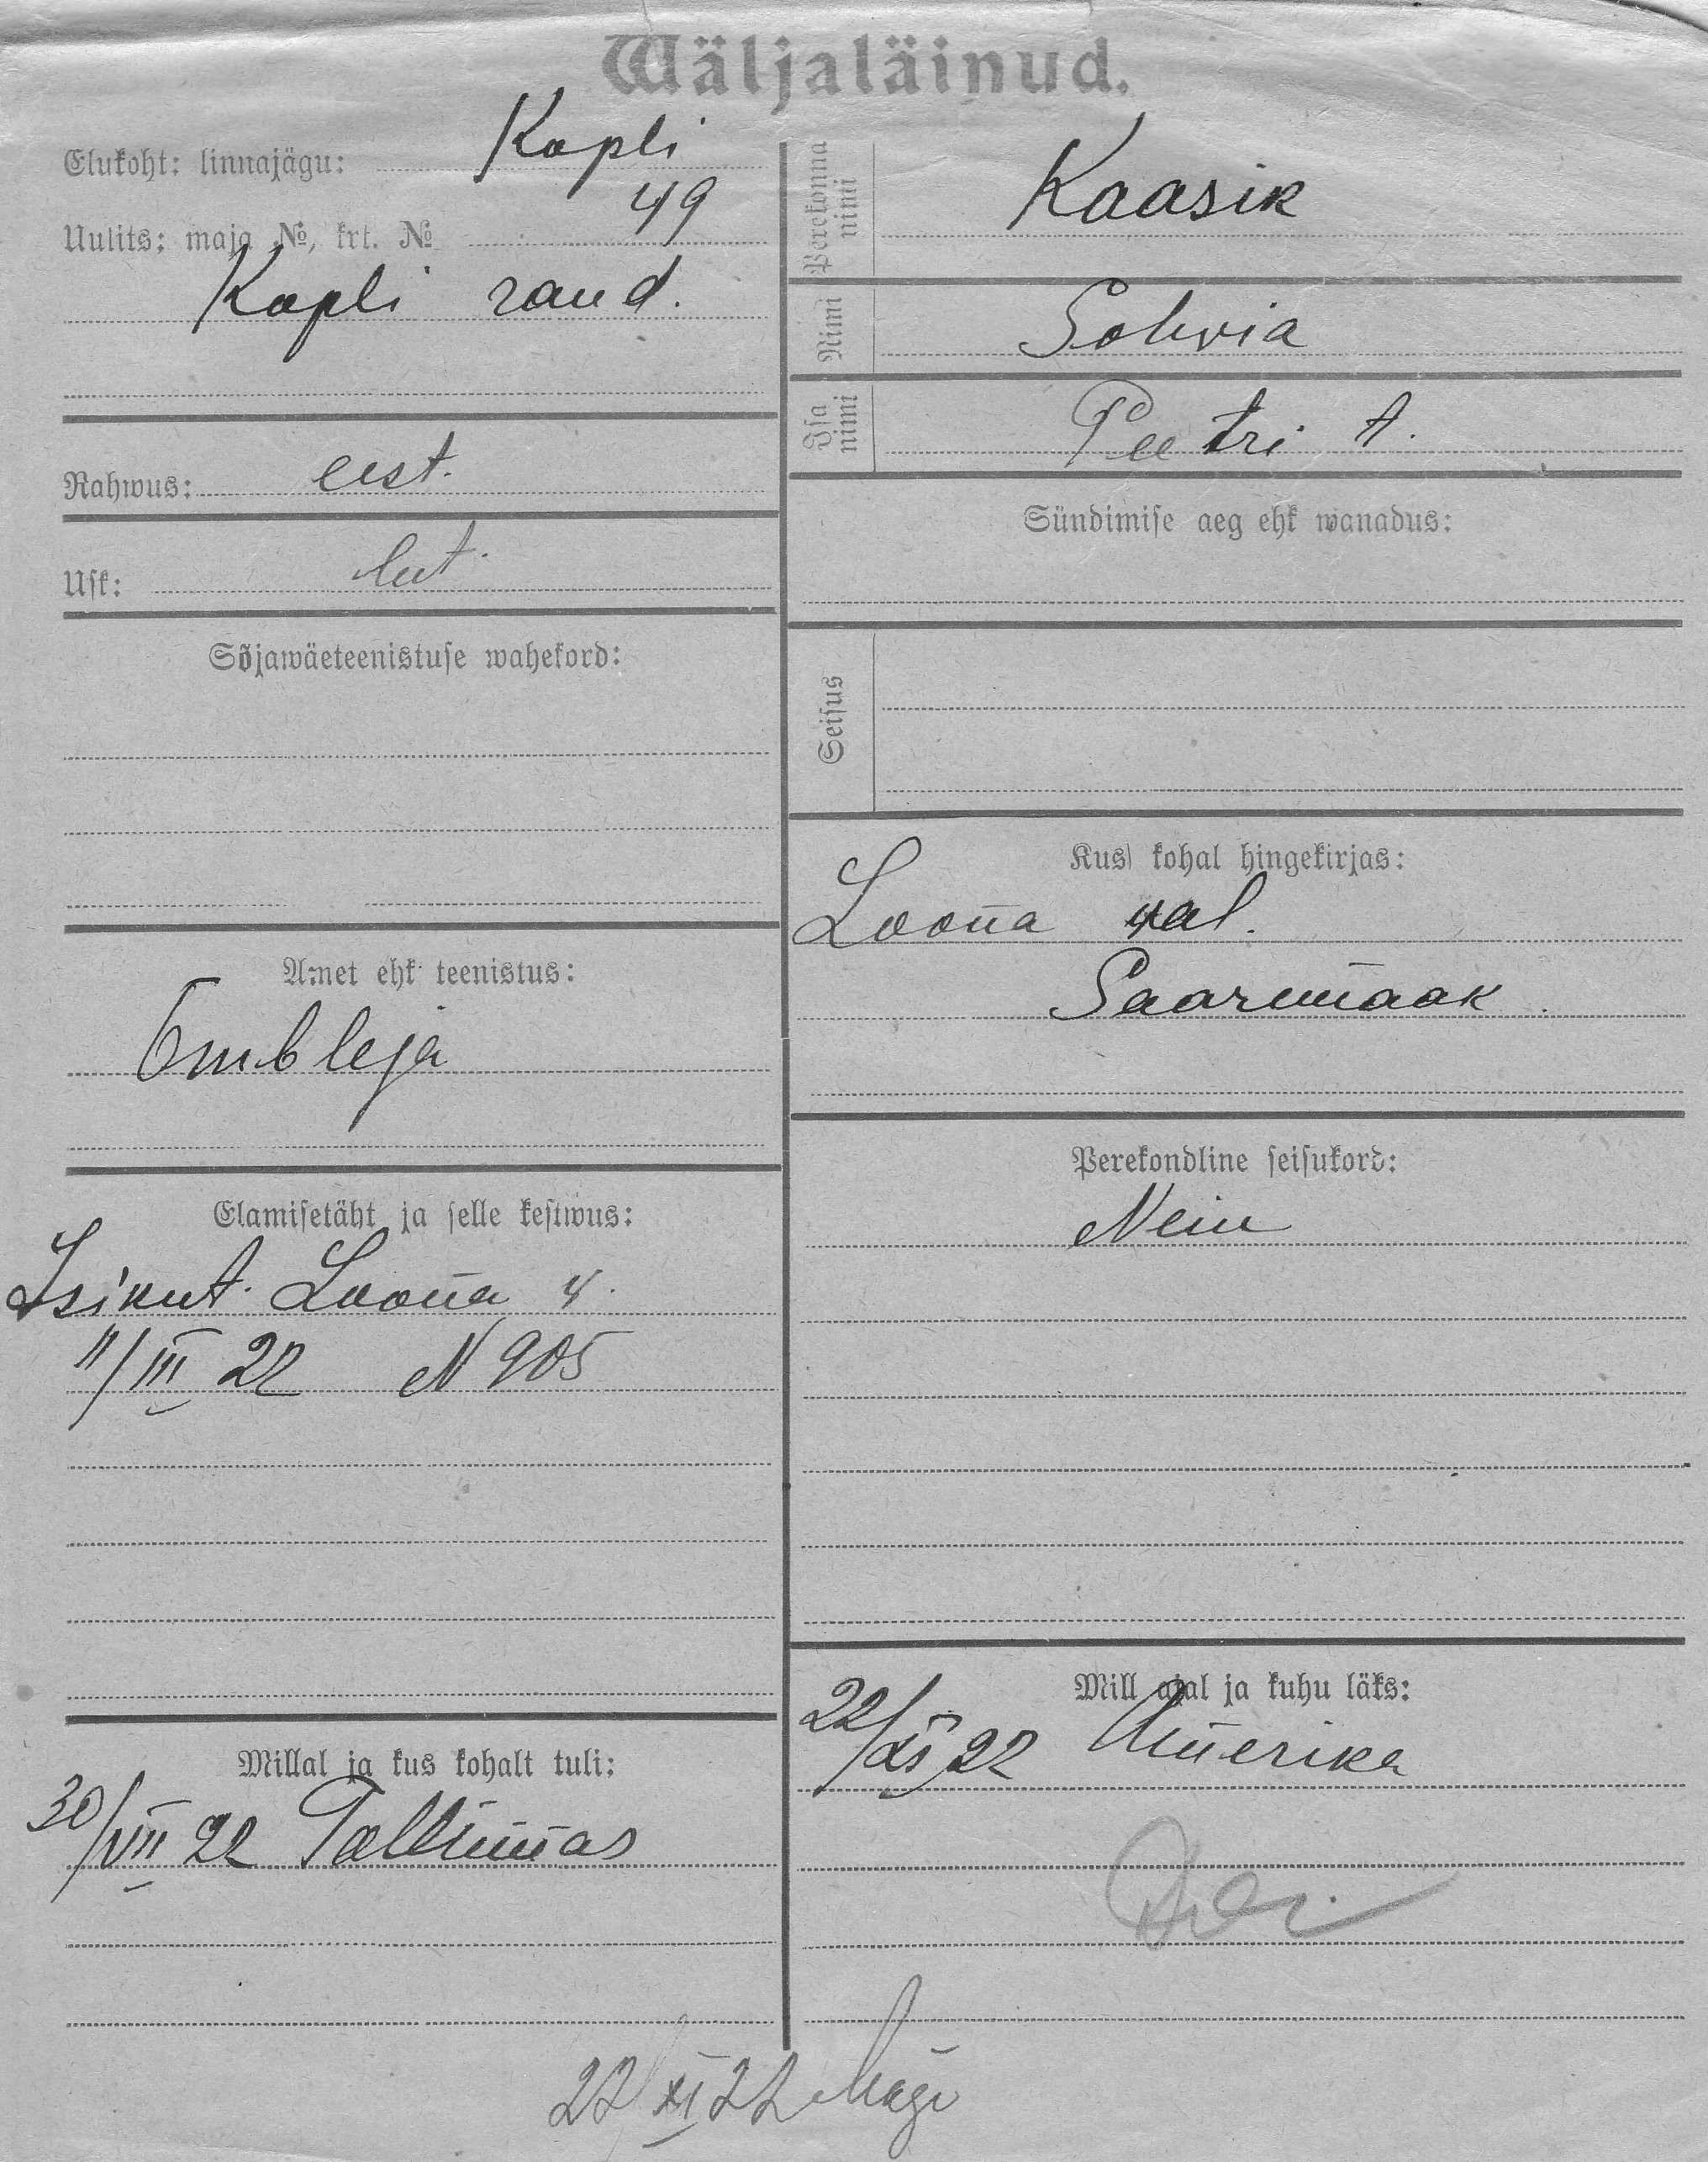 Wäljaläinud.
Elukoht: linnajägu: Kopli
Uulits: maja №, krt. № 49
Kopli rand.
Rahwus: eest.
Usk: lut.
Sõjawäeteenistuse wahekord:
Amet ehk teenistus:
Õmbleja
Elamisetäht ja selle kestwus:
Isikut. Loona v.
11/III 22 N 905
Millal ja kus kohalt tuli:
30/VII 22 Tallinnas
Perekonna nimi Kaasik
Nimi Sohvia
Isa nimi Peetri t.
Sündimise aeg ehk wanadus:
Seisus
Kus kohal hingekirjas:
Loona wal.
Saaremaak.
Perekondline seisukord:
Neiu
Mill ajal ja kuhu läks:
22/XI 22 Amerika
22/XI 22 Mägi